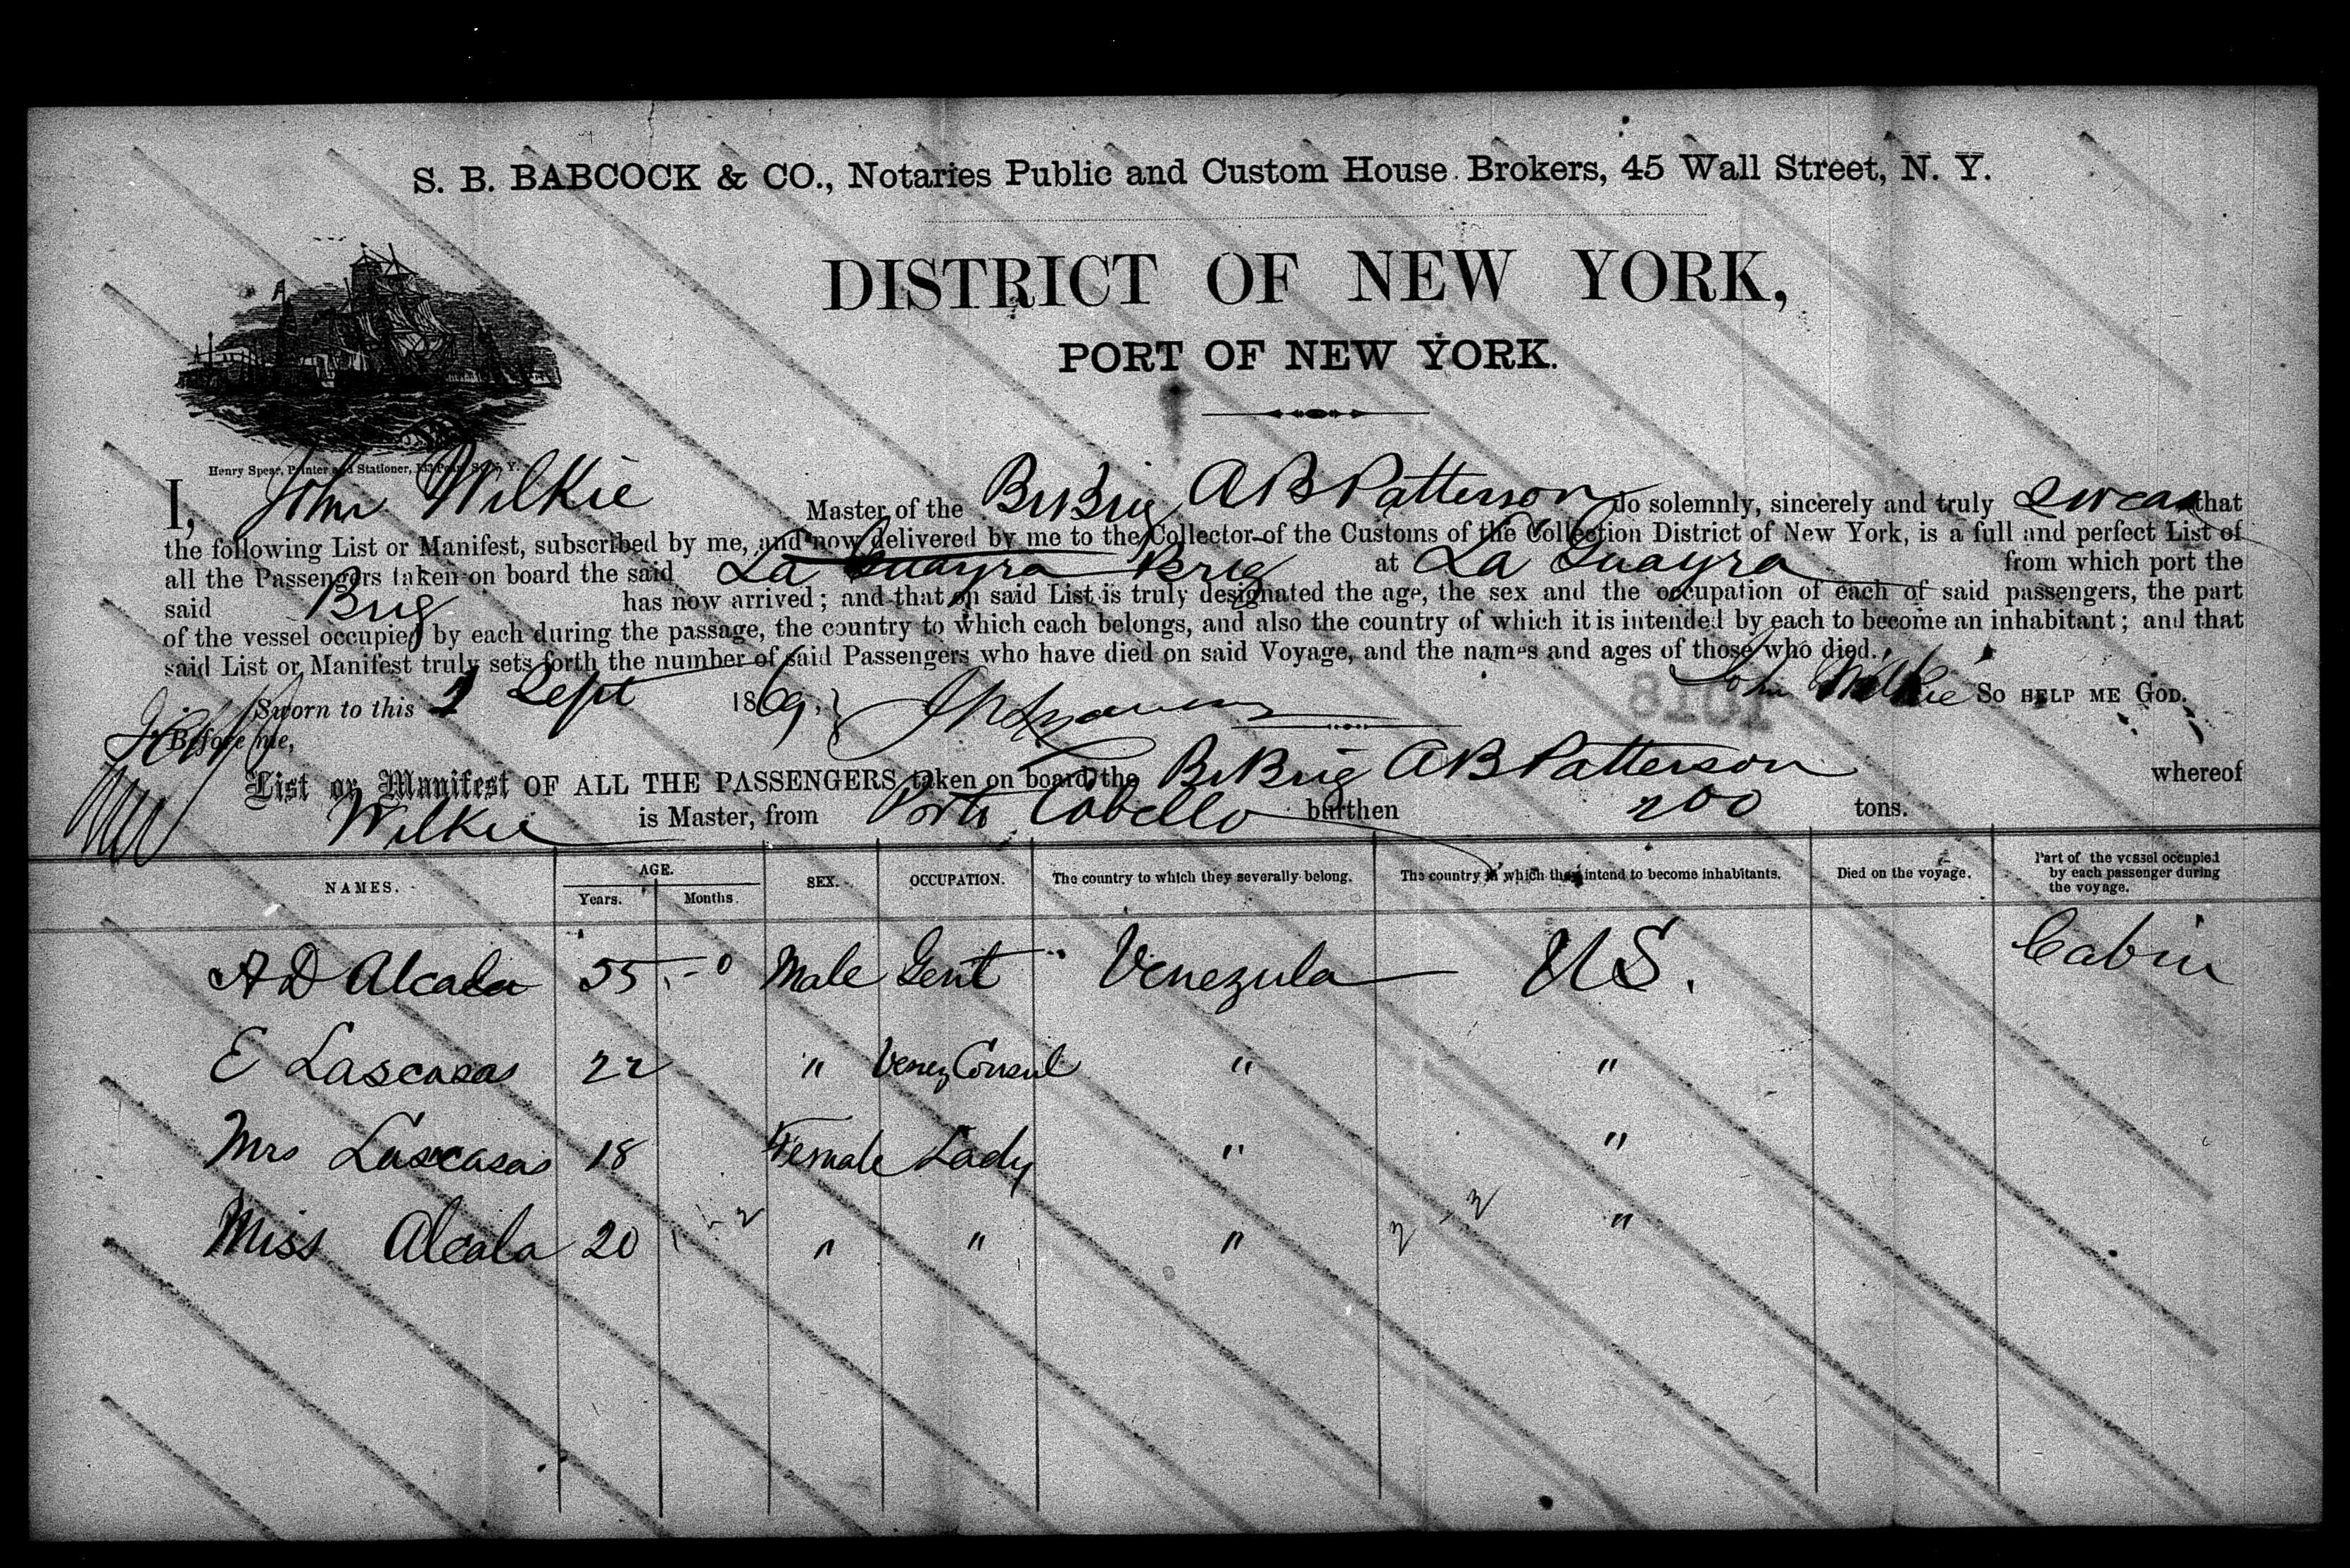 S. B. BABCOCK & CO., Notaries Public and Custom House Brokers, 45 Wall Street, N. Y.
DISTRICT OF NEW YORK,
PORT OF NEW YORK.
Henry Spear, Printer and Stationer, N. Y.
I, John Wilkie Master of the Br Brig A B Patterson do solemnly, sincerely and truly swear that
the following List or Manifest, subscribed by me, and now delivered by me to the Collector of the Customs of the Collection District of New York, is a full and perfect List of
all the Passengers taken on board the said La Guayra Brig at La Guayra from which port the
said Brig has now arrived; and that on said List is truly designated the age, the sex and the occupation of each of said passengers, the part
of the vessel occupied by each during the passage, the country to which each belongs, and also the country of which it is intended by each to become an inhabitant; and that
said List or Manifest truly sets forth the number of said Passengers who have died on said Voyage, and the names and ages of those who died.
Sworn to this 2 Sept 1869. John Wilkie SO HELP ME GOD.
1018
Before me,
List or Manifest OF ALL THE PASSENGERS taken on board the Br Brig A B Patterson whereof
Wilkie is Master, from Porto Cabello burthen 200 tons.
NAMES. AGE. Years. Months. SEX. OCCUPATION. The country to which they severally belong. The country in which they intend to become inhabitants. Died on the voyage. Part of the vessel occupied by each passenger during the voyage.
A D Alcala 55 - 0 Male Gent Venezula U S. Cabin
E Lascasas 22 " Venez Consul " "
Mrs Lascasas 18 Female Lady " "
Miss Alcala 20 " " " "